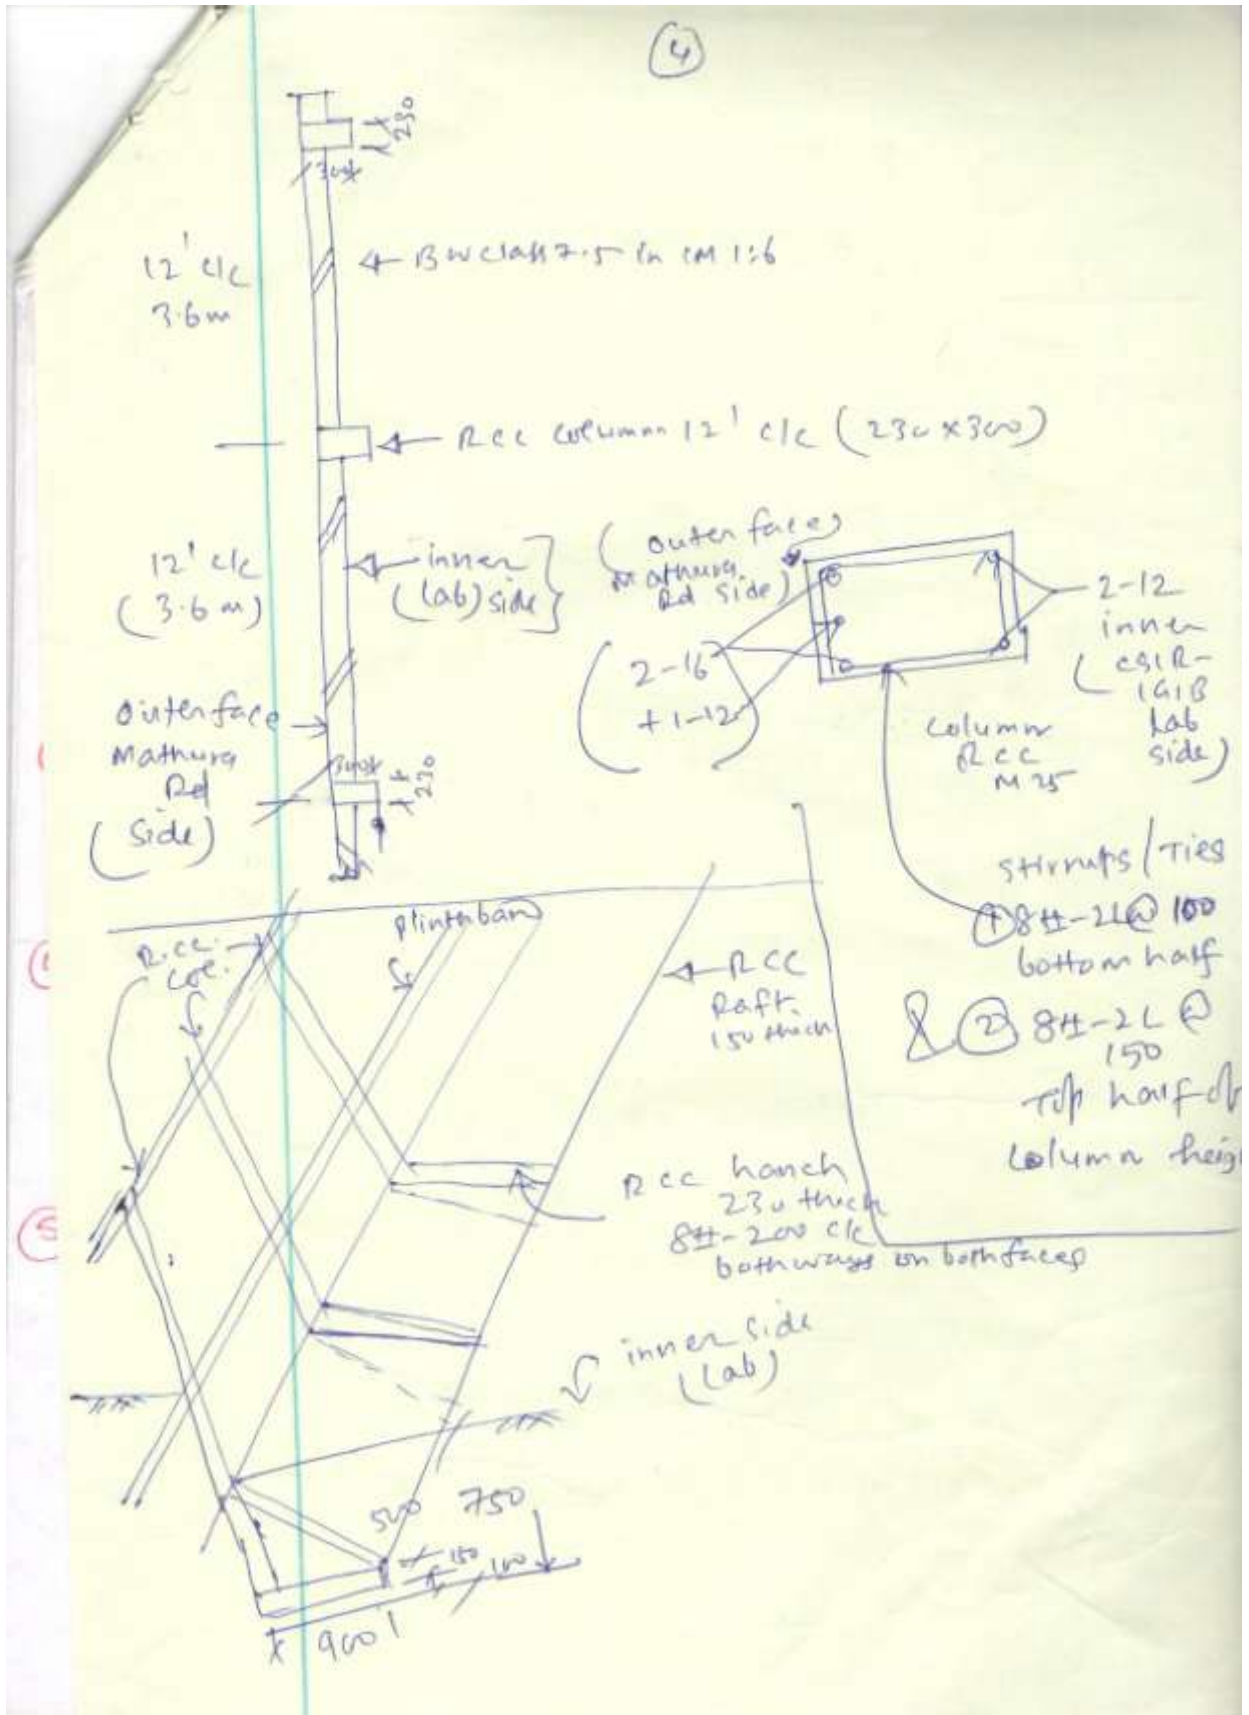 4
230
300
12' c/c
3.6m
BW class 7.5 in CM 1:6
RCC column 12' c/c (230 x 300)
12' c/c
(3.6 m)
inner
(Lab) side
(outer face
Mathura
Rd side)
2-16
+ 1-12
2-12
inner
(CSIR-
IGIB
Lab
side)
column
RCC
M 25
outer face
Mathura
Rd
(side)
300
230
stirrups / Ties
① 8#-2L @ 100
bottom half
& ② 8#-2L @
150
Top half of
column heig
R.CC.
COL.
plinth beam
RCC
Raft
150 thick
RCC hanch
230 thick
8#-200 c/c
both ways on both faces
5
inner side
(Lab)
500 750
150
100
900